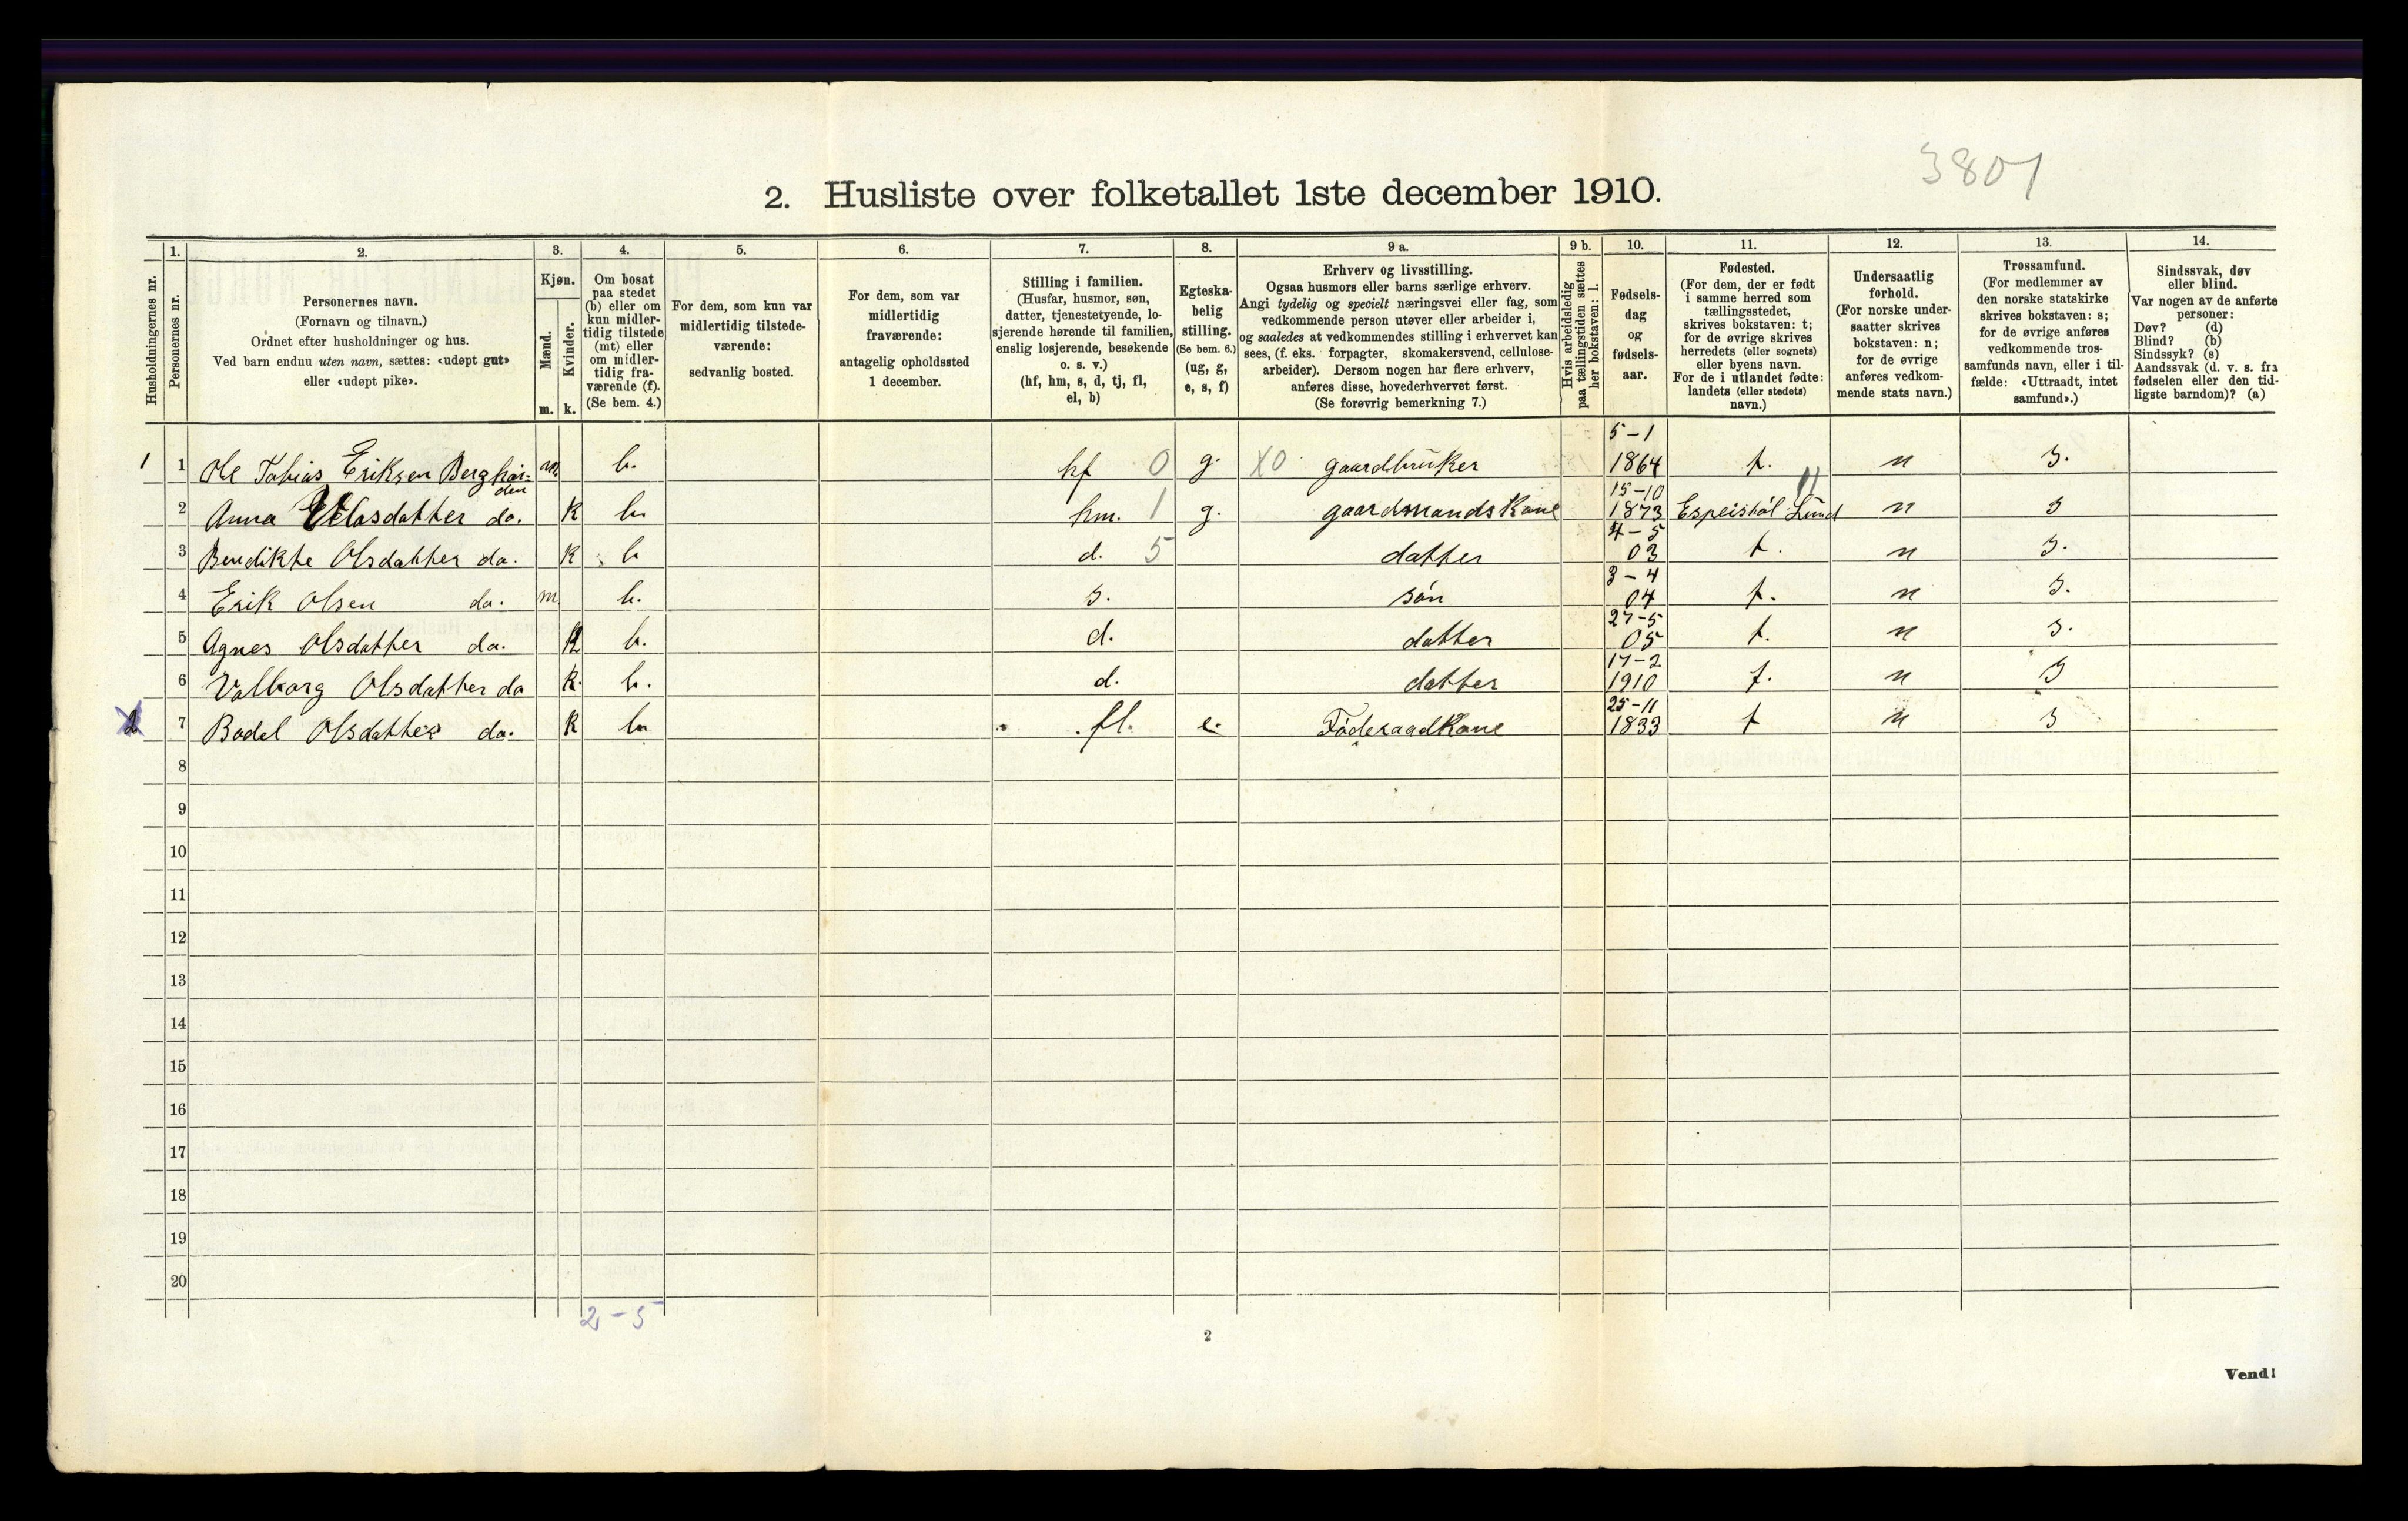 3801
2. Husliste over folketallet 1ste december 1910.
Husholdningernes nr.
1.
Personernes nr.
2.
Personernes navn.
(Fornavn og tilnavn.)
Ordnet efter husholdninger og hus.
Ved barn endnu uten navn, sættes: «udøpt gut»
eller «udøpt pike».
3.
Kjøn.
Mænd.
Kvinder.
m. k.
4.
Om bosat
paa stedet
(b) eller om
kun midler-
tidig tilstede
(mt) eller
om midler-
tidig fra-
værende (f).
(Se bem. 4.)
5.
For dem, som kun var
midlertidig tilstede-
værende:
sedvanlig bosted.
6.
For dem, som var
midlertidig
fraværende:
antagelig opholdssted
1 december.
7.
Stilling i familien.
(Husfar, husmor, søn,
datter, tjenestetyende, lo-
sjerende hørende til familien,
enslig losjerende, besøkende
o. s. v.)
(hf, hm, s, d, tj, fl,
el, b)
8.
Egteska-
belig
stilling.
(Se bem. 6.)
(ug, g,
e, s, f)
9 a.
Erhverv og livsstilling.
Ogsaa husmors eller barns særlige erhverv.
Angi tydelig og specielt næringsvei eller fag, som
vedkommende person utøver eller arbeider i,
og saaledes at vedkommendes stilling i erhvervet kan
sees, (f. eks. forpagter, skomakersvend, cellulose-
arbeider). Dersom nogen har flere erhverv,
anføres disse, hovederhvervet først.
(Se forøvrig bemerkning 7.)
9 b.
Hvis arbeidsledig
paa tællingstiden sættes
her bokstaven: l.
10.
Fødsels-
dag
og
fødsels-
aar.
11.
Fødested.
(For dem, der er født
i samme herred som
tællingsstedet,
skrives bokstaven: t;
for de øvrige skrives
herredets (eller sognets)
eller byens navn.
For de i utlandet fødte:
landets (eller stedets)
navn.)
12.
Undersaatlig
forhold.
(For norske under-
saatter skrives
bokstaven: n;
for de øvrige
anføres vedkom-
mende stats navn.)
13.
Trossamfund.
(For medlemmer av
den norske statskirke
skrives bokstaven: s;
for de øvrige anføres
vedkommende tros-
samfunds navn, eller i til-
fælde: «Uttraadt, intet
samfund».)
14.
Sindssvak, døv
eller blind.
Var nogen av de anførte
personer:
Døv? (d)
Blind? (b)
Sindssyk? (s)
Aandssvak (d. v. s. fra
fødselen eller den tid-
ligste barndom)? (a)
1 1 Ole Tobias Eriksen m. b. hf 0 g. X0 gaardbruker 5-1 1864 t. n s.
2 Anna da. k b. hm. 1 g. gaardmandskone 15-10 1873 Lund n s
3 Bendikte Olsdatter da. k b d. 5 datter 4-5 03 t. n s.
4 Erik Olsen da. m. b. s. søn 3-4 04 t. n s.
5 Agnes Olsdatter da. k b. d. datter 27-5 05 t. n s.
6 Valborg Olsdatter da k. b. d. datter 17-2 1910 t. n s
2 7 Bodel Olsdatter da. k b. fl. e. Føderaadkone 25-11 1833 t n s
8
9
10
11
12
13
14
15
16
17
18
19
20
2-5
2
Vend!